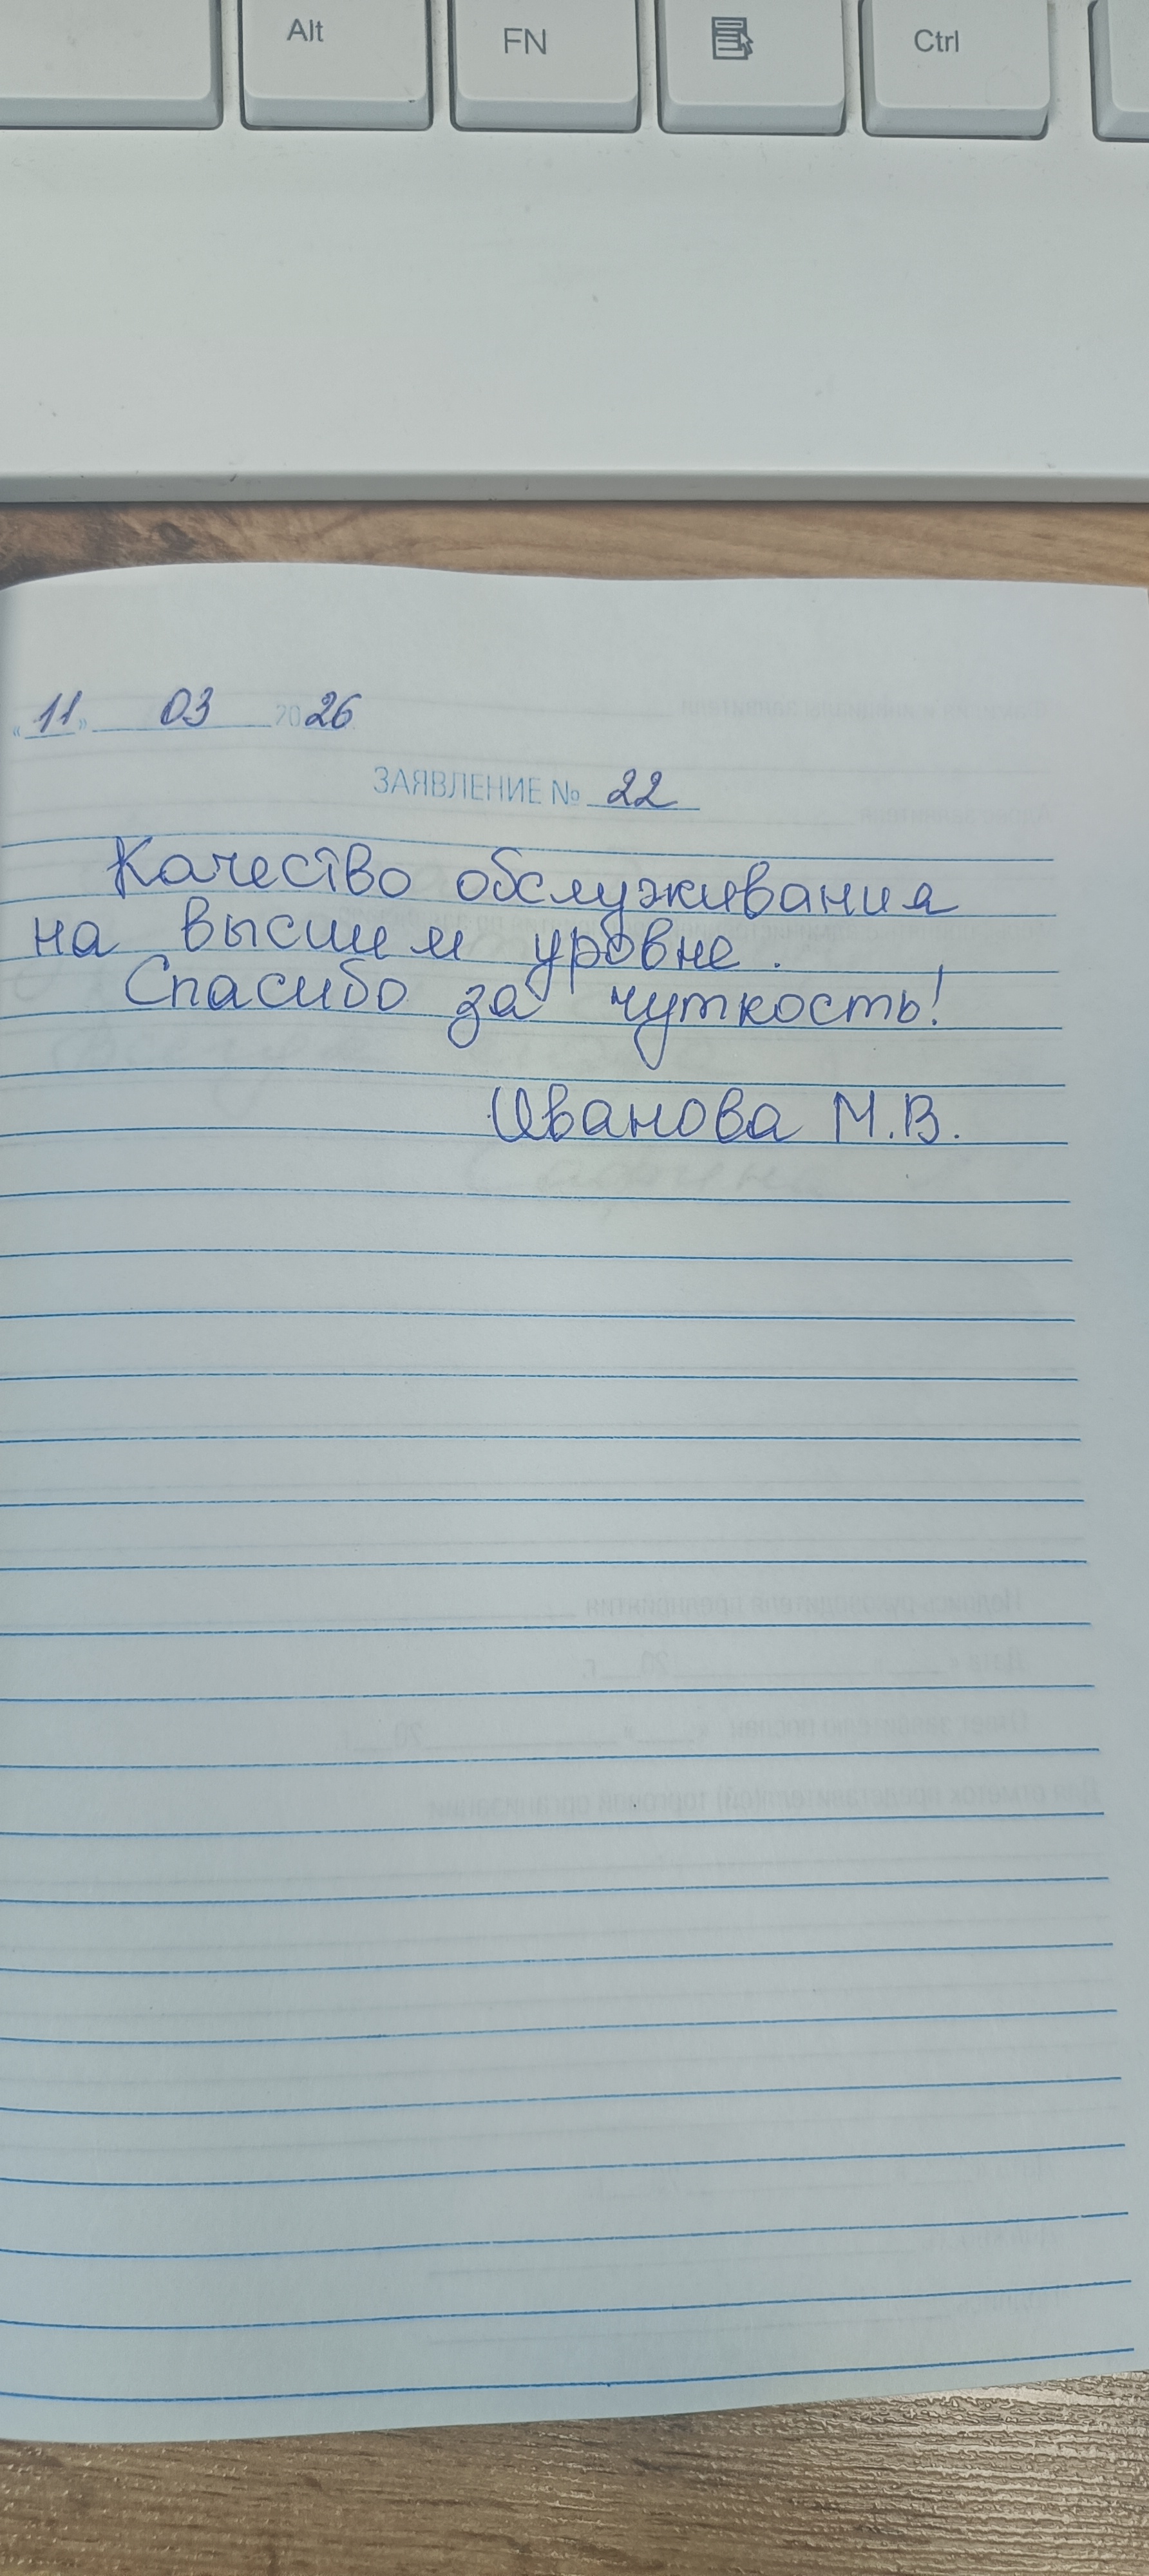 Alt FN Ctrl
«11» 03 2026
ЗАЯВЛЕНИЕ № 22
Качество обслуживания
на высшем уровне.
Спасибо за чуткость!
Иванова М.В.